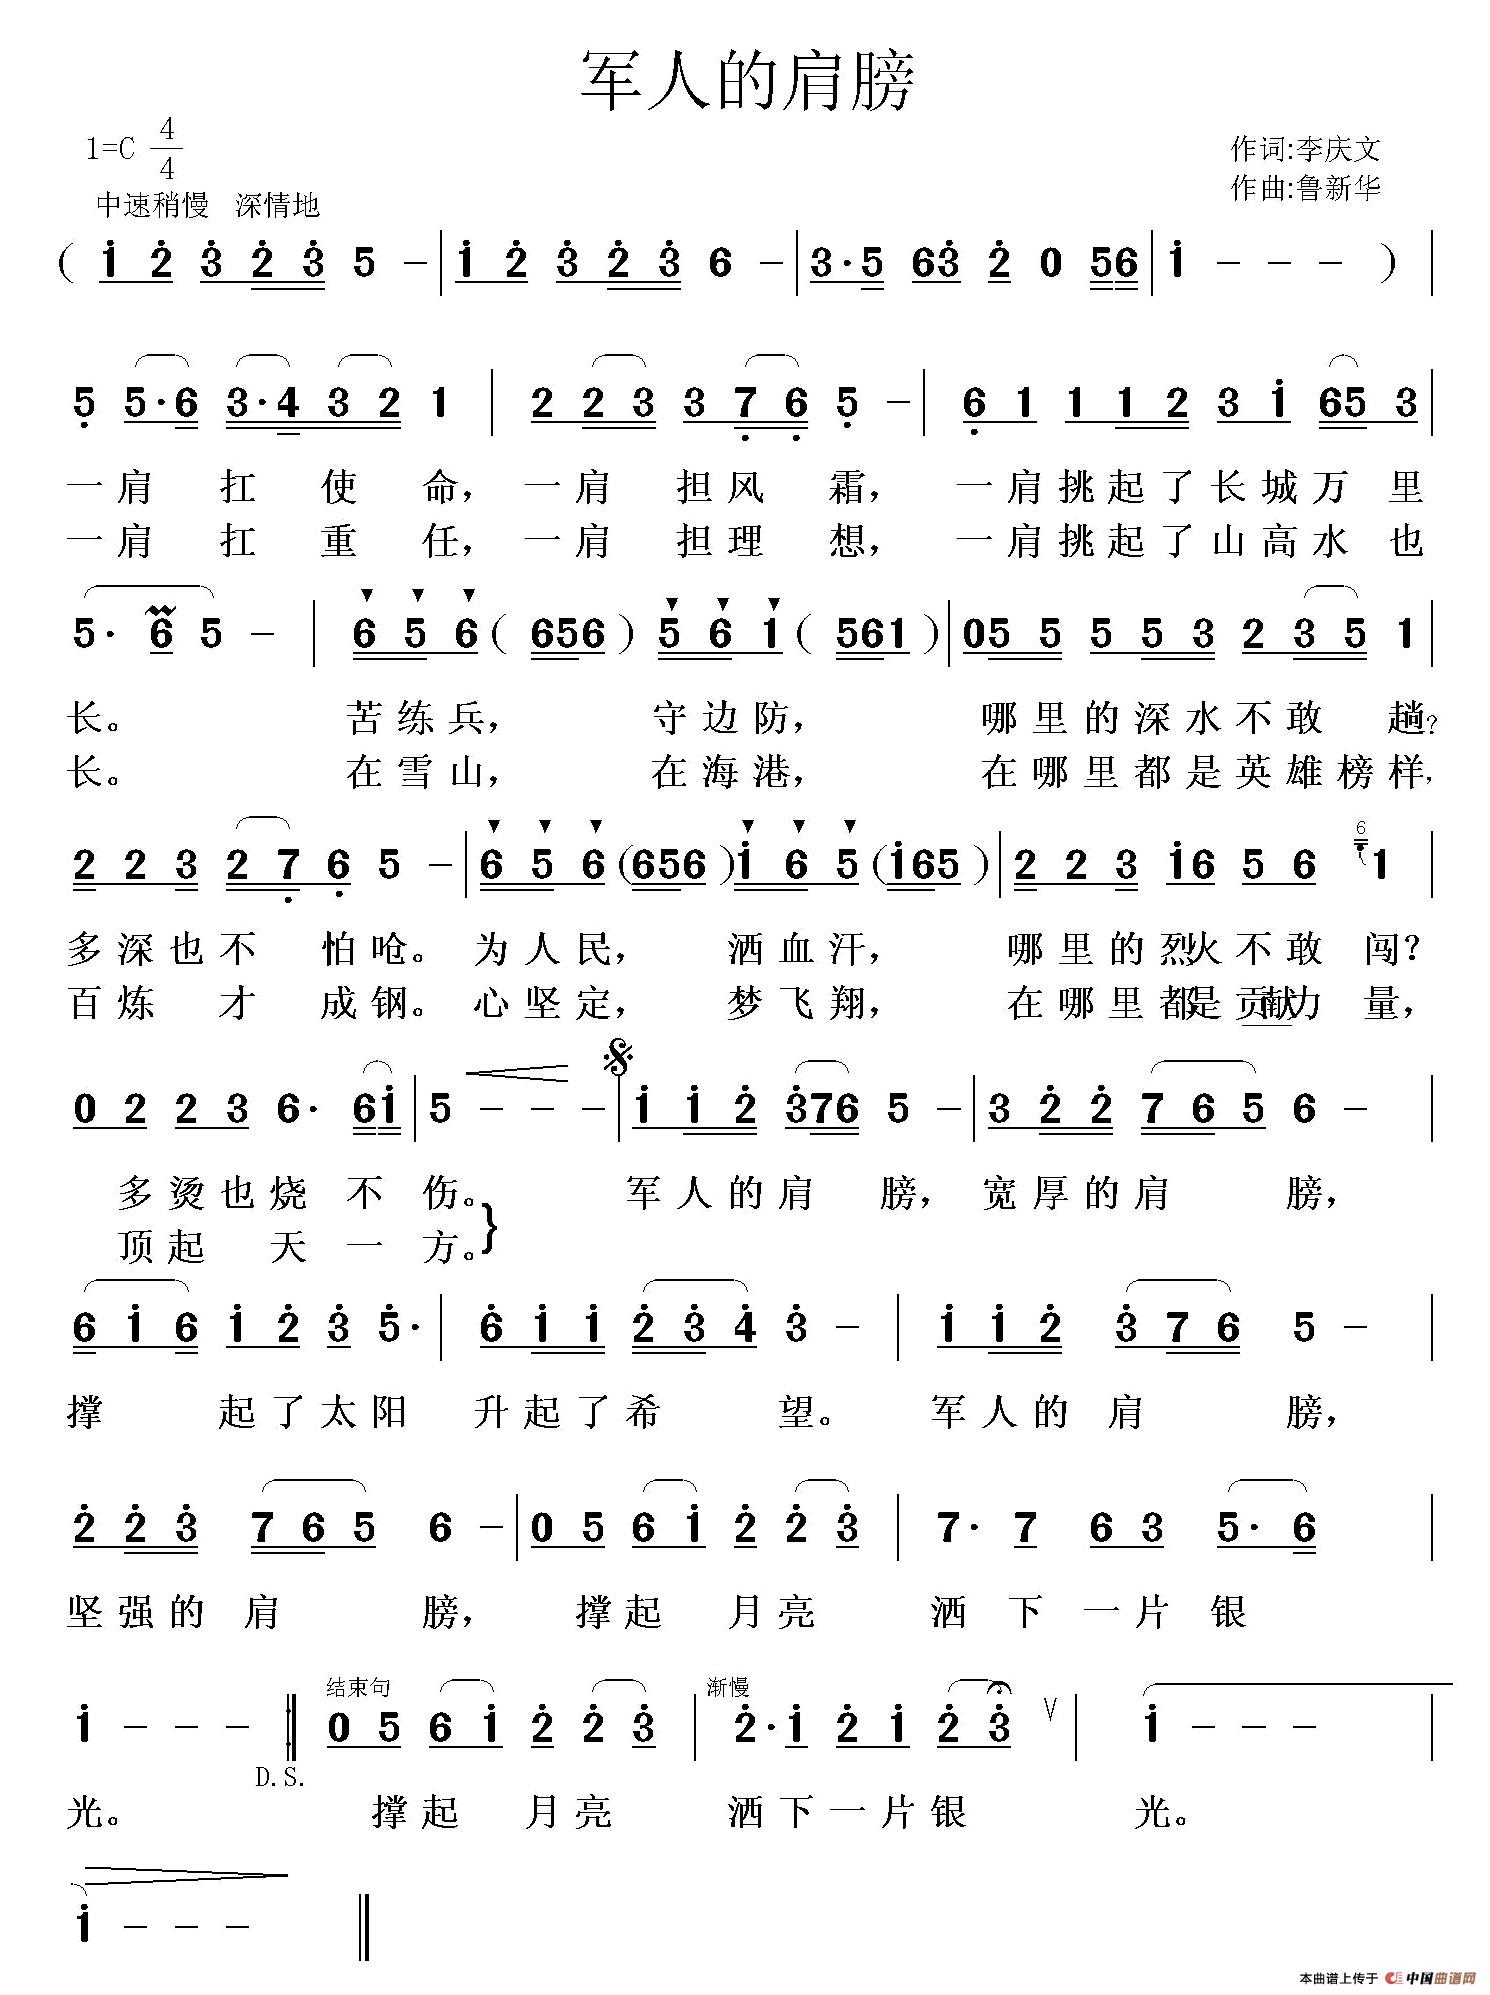 军人的肩膀
1=C 4/4
作词:李庆文
作曲:鲁新华
中速稍慢 深情地
( i 2 3 2 3 5 - | i 2 3 2 3 6 - | 3·5 63 2 0 56 | i - - - ) |
5 5·6 3·4 3 2 1 | 2 2 3 3 7 6 5 - | 6 1 1 1 2 3 i 65 3 |
一肩 扛 使 命, 一肩 担风 霜, 一肩挑起了长城万里
一肩 扛 重 任, 一肩 担理 想, 一肩挑起了山高水也
5· 6 5 - | 6 5 6 ( 656 ) 5 6 1 ( 561 ) | 05 5 5 5 3 2 3 5 1 |
长。 苦练兵, 守边防, 哪里的深水不敢 趟?
长。 在雪山, 在海港, 在哪里都是英雄榜样,
2 2 3 2 7 6 5 - | 6 5 6 (656) i 6 5 (i65) | 2 2 3 i6 5 6 6 1 |
多深也不 怕呛。 为人民, 洒血汗, 哪里的烈火不敢 闯?
百炼 才 成钢。 心坚定, 梦飞翔, 在哪里都是贡献力 量,
0 2 2 3 6· 6i | 5 - - - | i i 2 376 5 - | 3 2 2 7 6 5 6 - |
多烫也烧 不 伤。 军人的肩 膀, 宽厚的肩 膀,
顶起 天 一 方。}
6 i 6 i 2 3 5· | 6 i i 2 3 4 3 - | i i 2 3 7 6 5 - |
撑 起了太阳 升起了希 望。 军人的 肩 膀,
2 2 3 7 6 5 6 - | 0 5 6 i 2 2 3 | 7· 7 6 3 5· 6 |
坚强的 肩 膀, 撑起 月亮 洒 下 一片 银
结束句 渐慢
i - - - :‖ 0 5 6 i 2 2 3 | 2·i 2 i 2 3 V | i - - - |
D.S.
光。 撑起 月亮 洒下一片银 光。
i - - - ‖
本曲谱上传于 中国曲谱网